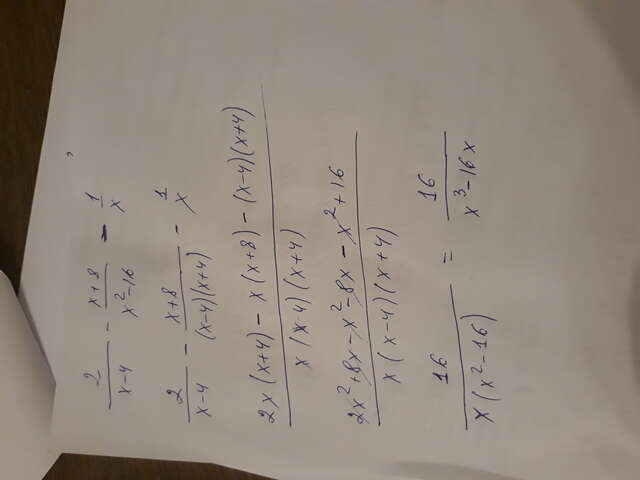 2/(x-4) - (x+8)/(x²-16) - 1/x
2/(x-4) - (x+8)/((x-4)(x+4)) - 1/x
(2x(x+4) - x(x+8) - (x-4)(x+4))/(x(x-4)(x+4))
(2x²+8x-x²-8x-x²+16)/(x(x-4)(x+4))
16/(x(x²-16)) = 16/(x³-16x)